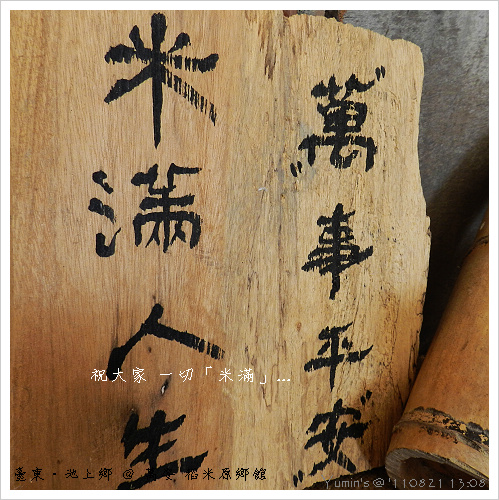 萬事平安
米滿人生
祝大家 一切「米滿」...
臺東‧池上鄉 @ 稻米原鄉館
Yumin's @ '110821 13:08